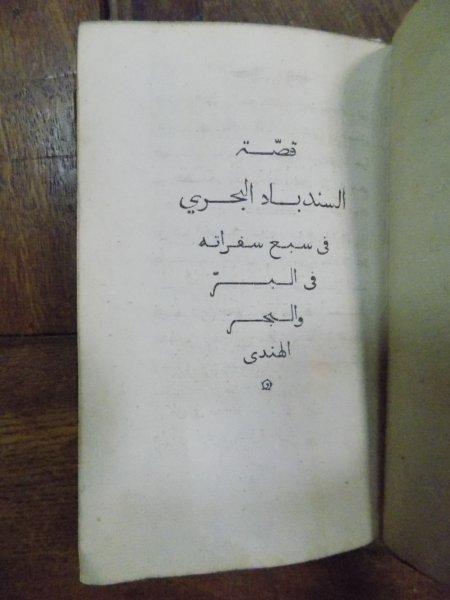 قصّة
السندباد البحري
فى سبع سفراته
فى البرّ
والبحر
الهندى